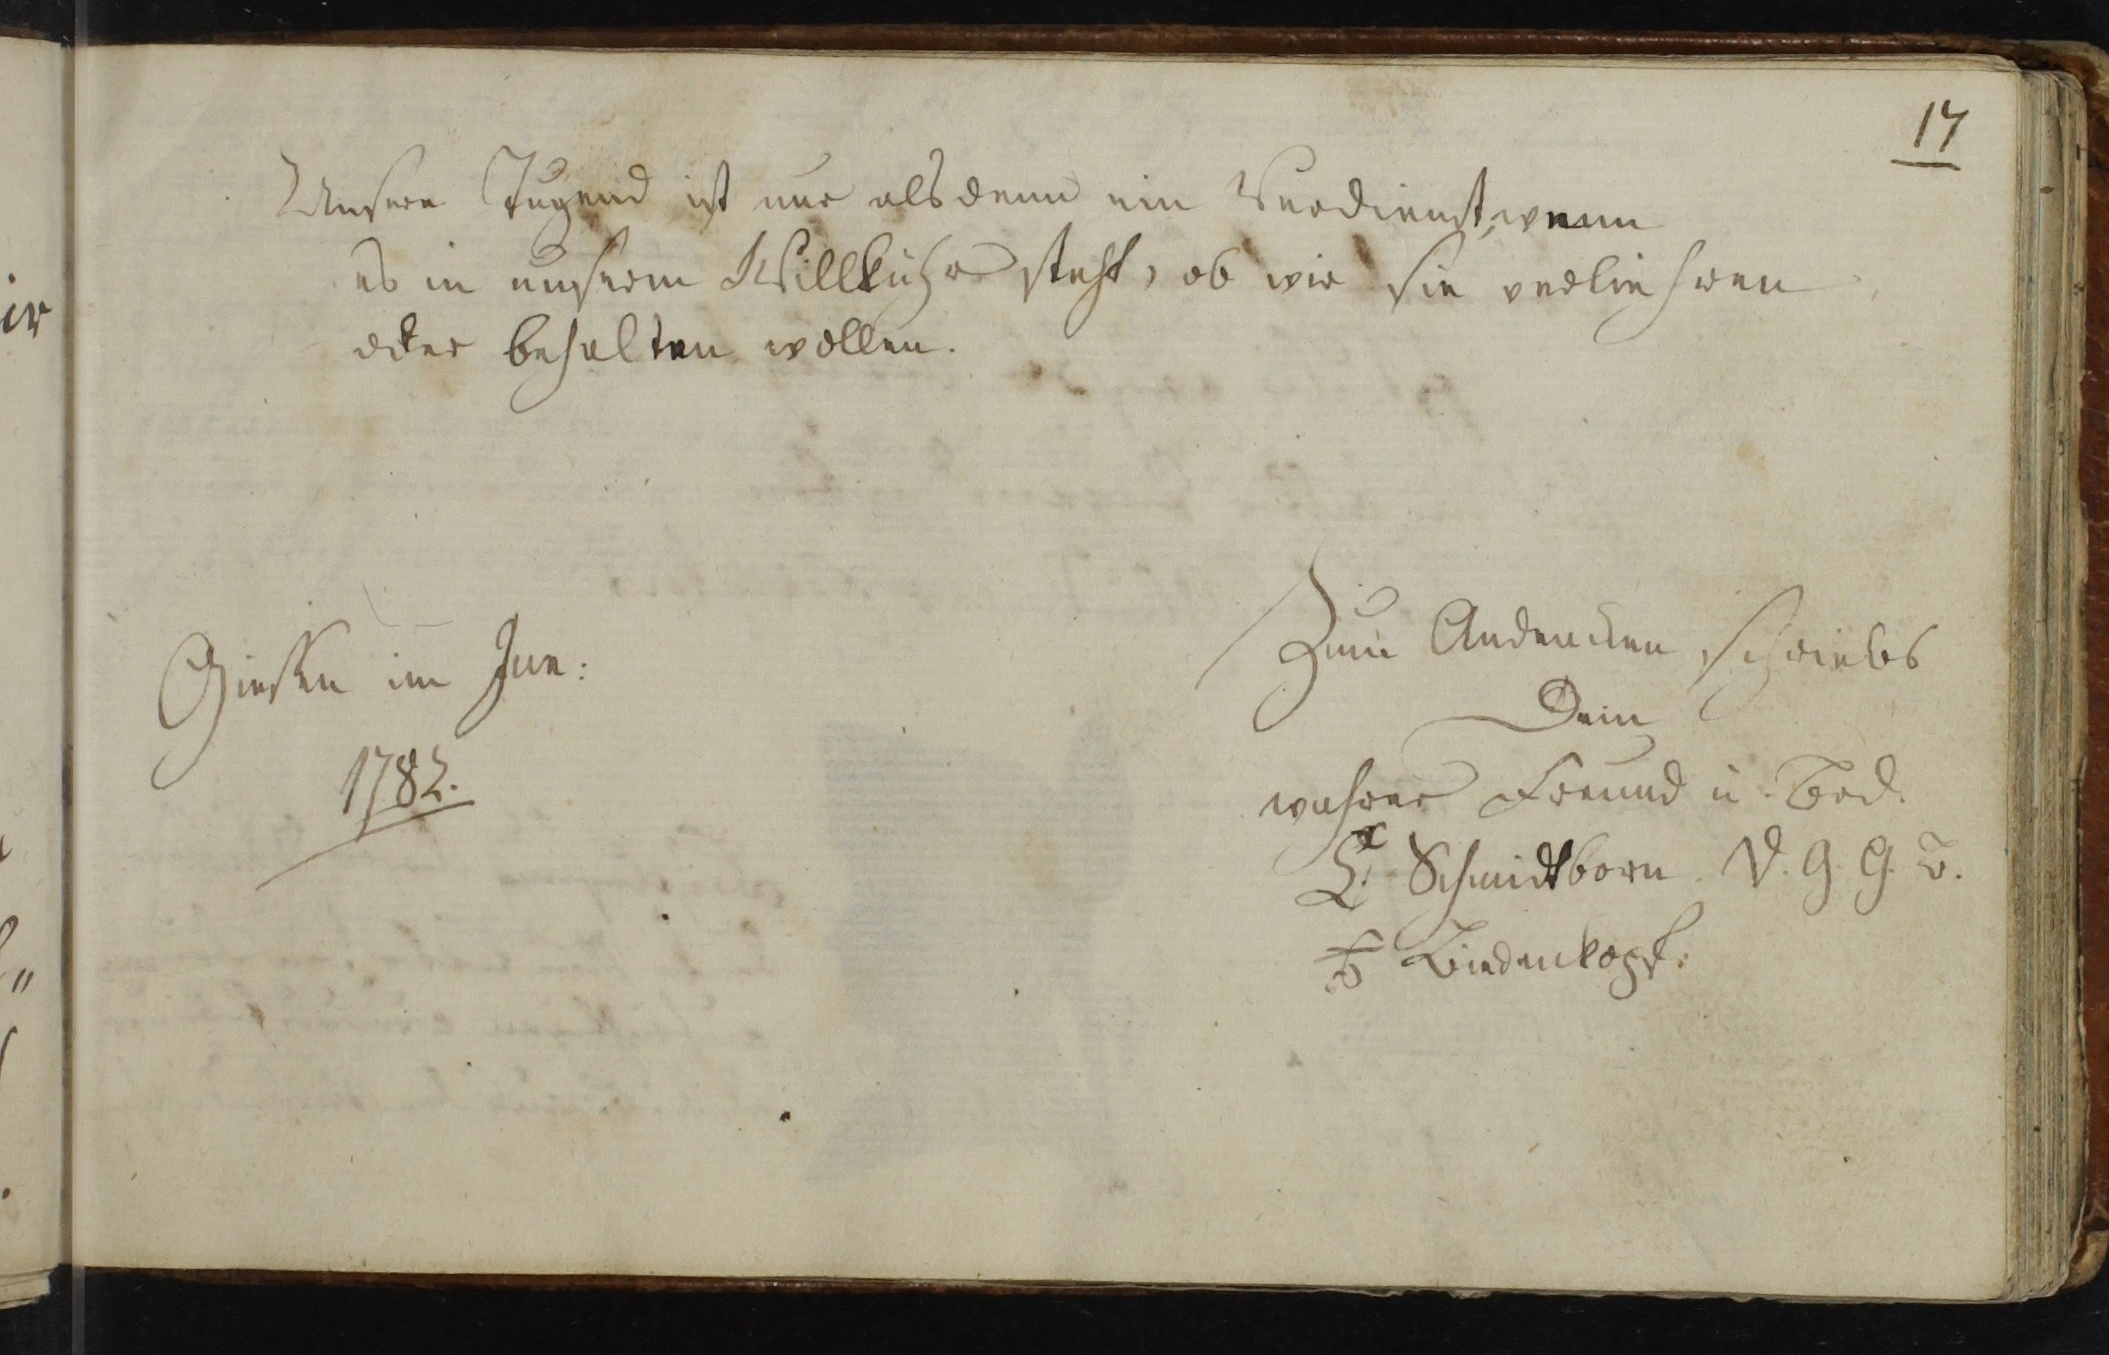 17
Unsere Tugend ist nur alsdenn ein Verdienst, wenn
es in unserm Willkühr steht, ob wir sie verliehren
oder behalten wollen.
Giessen im Jun:
1782.
Zum Andencken schriebs
Dein
wahrer Freund u. Brd.
Schmidtborn. d. G. G. B.
Biedenkopf.
ir